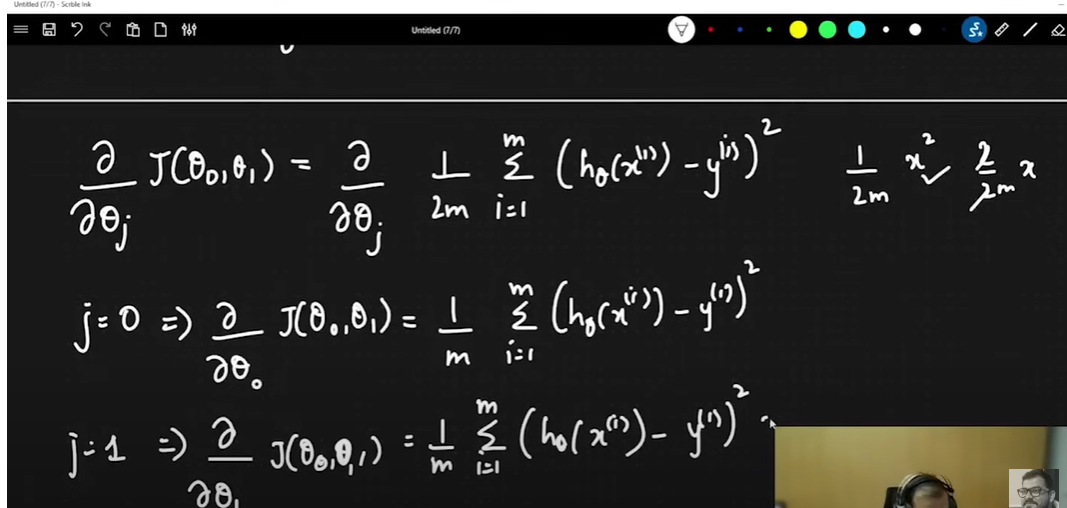 Untitled (7/7) - Scrble Ink
Untitled (7/7)
∂/∂θj J(θ0,θ1) = ∂/∂θj 1/2m Σ i=1 m (hθ(x^(i)) - y^(i))^2 1/2m x^2 ✓ 2/2m x
j=0 => ∂/∂θ0 J(θ0,θ1) = 1/m Σ i=1 m (hθ(x^(i)) - y^(i))^2
j=1 => ∂/∂θ1 J(θ0,θ1) = 1/m Σ i=1 m (hθ(x^(i)) - y^(i))^2